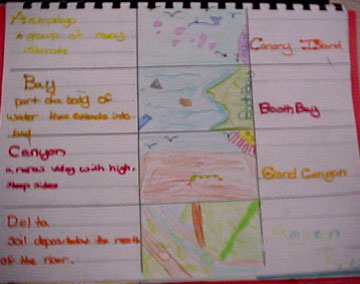 Archipelago
a group of many
islands
Canary Island
Bay
part of a body of
water that extends into
Booth Bay
Canyon
a narrow valley with high,
steep sides
Grand Canyon
Delta
Soil deposited at the mouth
of the river.